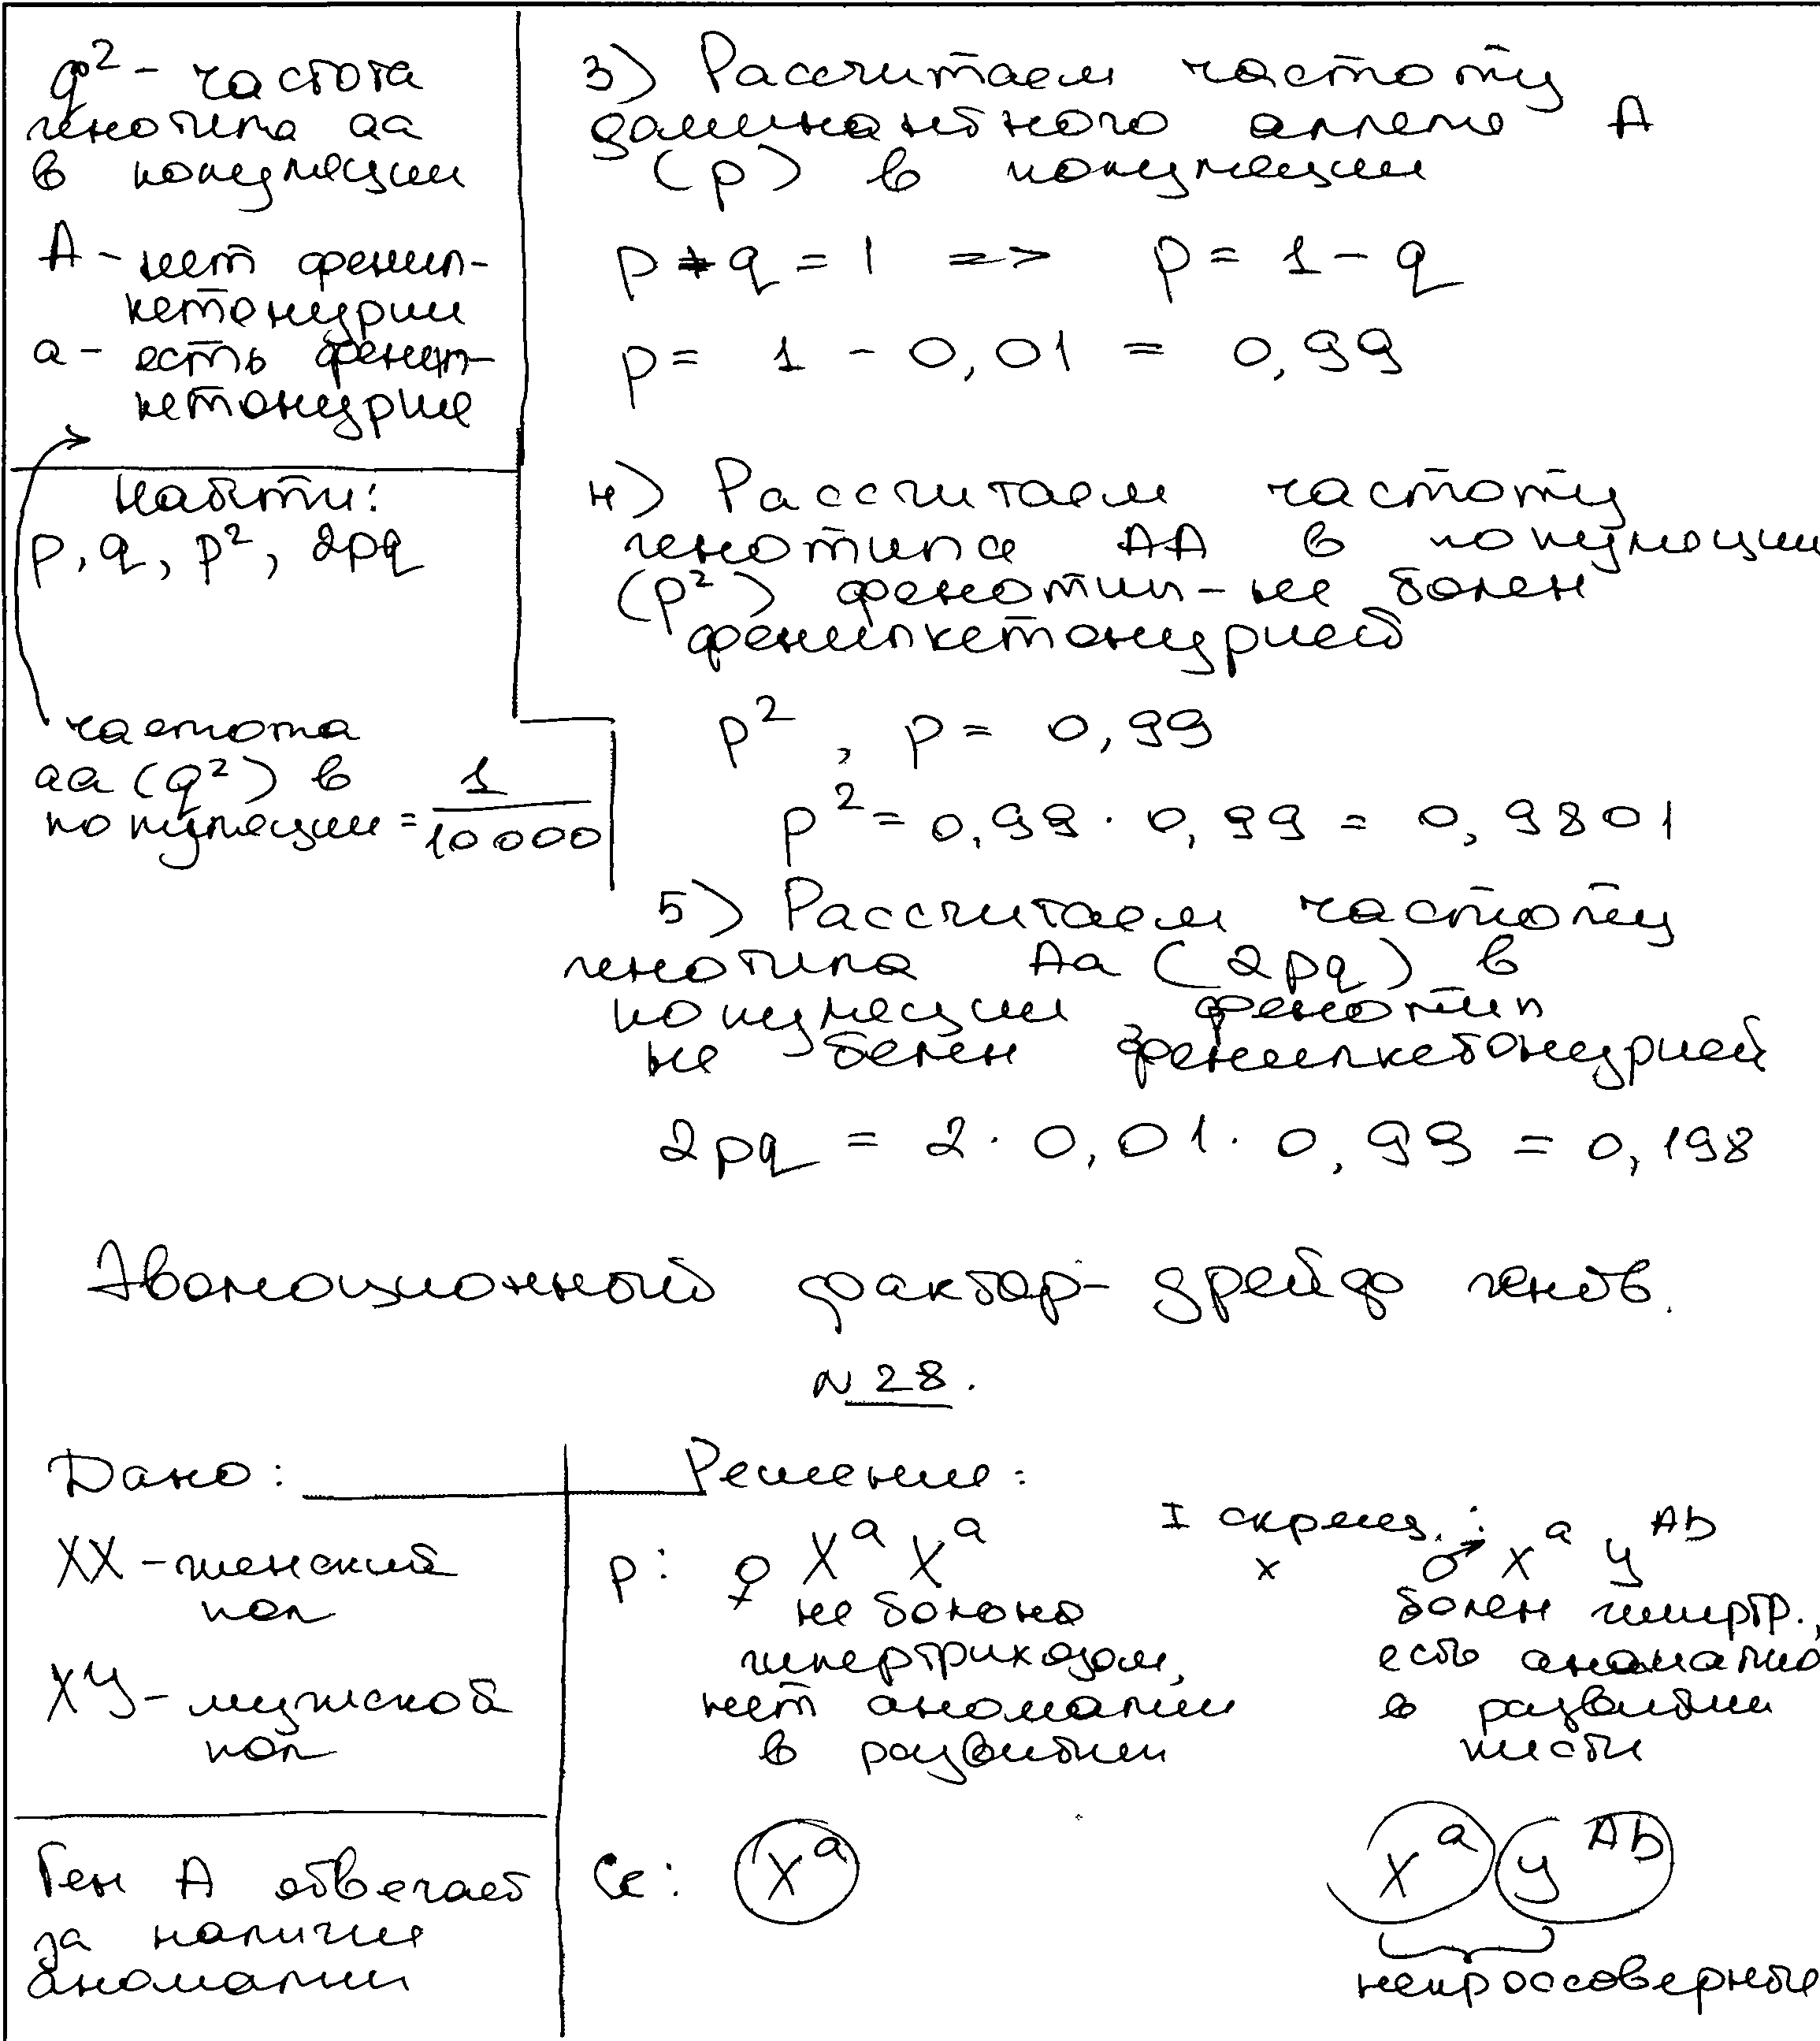 q² - частота
генотипа аа
в популяции
А - нет фенил-
кетонурии
а - есть фенил-
кетонурие
Найти:
p, q, p², 2pq
частота
аа (q²) в
популяции = 1/10000
3) Рассчитаем частоту
доминантного аллеля А
(p) в популяции
p + q = 1 => p = 1 - q
p = 1 - 0,01 = 0,99
4) Рассчитаем частоту
генотипа АА в популяции
(p²) фенотип - не болен
фенилкетонурией
p², p = 0,99
p² = 0,99 · 0,99 = 0,9801
5) Рассчитаем частоту
генотипа Аа (2pq) в
популяции фенотип
не болен фенилкетонурией
2pq = 2 · 0,01 · 0,99 = 0,198
Эволюционный фактор - дрейф генов.
N 28.
Дано:
XX - женский
пол
XY - мужской
пол
Ген А отвечает
за наличие
аномалии
Решение:
I скрещ.:
P: ♀ Xᵃ Xᵃ x ♂ Xᵃ Yᴬᵇ
не болена болен гипертр.,
гипертрихозом, есть аномалию
нет аномалии в развитии
в развитии кисти
G: Xᵃ Xᵃ Yᴬᵇ
некроссоверные